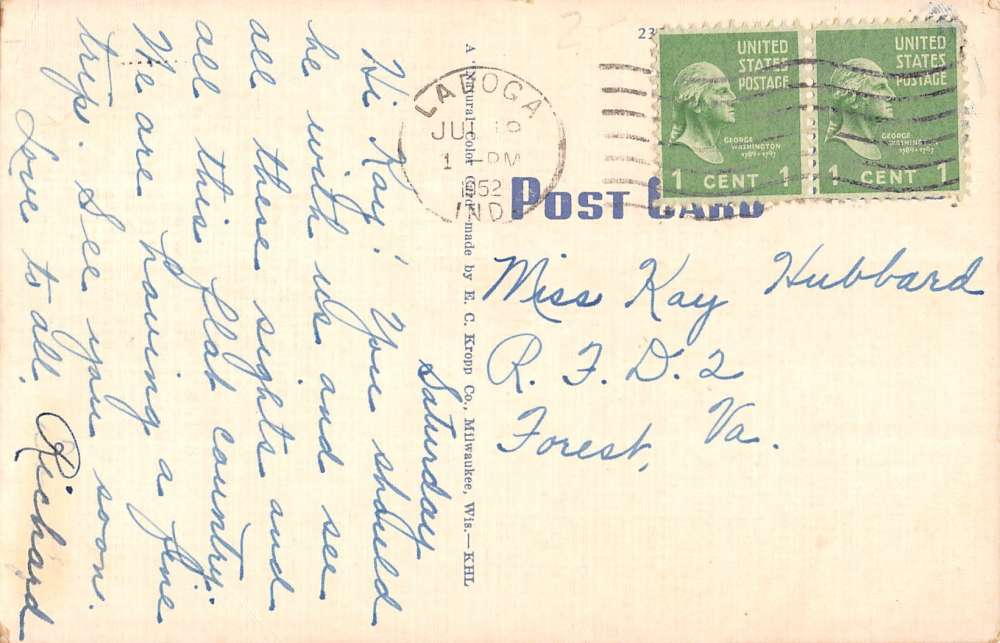 Saturday
Hi Kay! You should
be with us and see
all these sights and
all this flat country.
We are having a fine
trip. See you soon.
Love to all,
Richard
A "Natural Color Card" made by E. C. Kropp Co., Milwaukee, Wis.—KHL
LADOGA
JUL 19
1 –PM
1952
IND.
23
UNITED
STATES
POSTAGE
GEORGE
WASHINGTON
1789-1797
1 CENT 1
UNITED
STATES
POSTAGE
GEORGE
WASHINGTON
1789-1797
1 CENT 1
POST CARD
Miss Kay Hubbard
R. F. D. 2
Forest, Va.